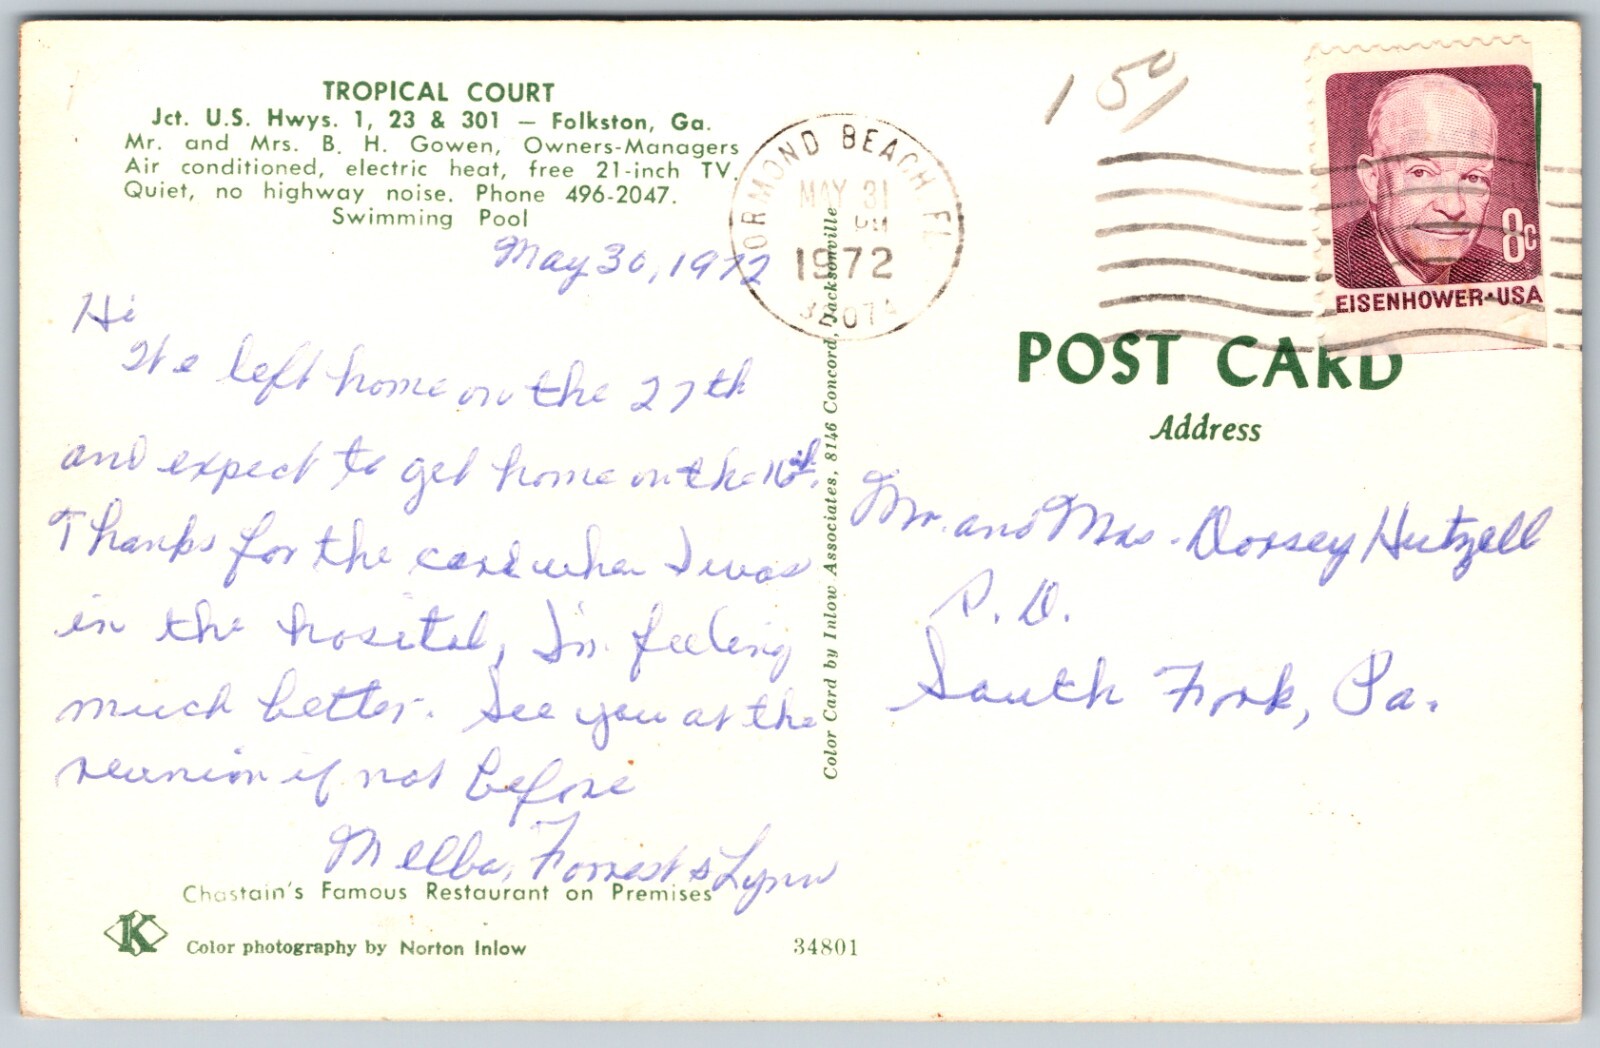 TROPICAL COURT
Jct. U.S. Hwys. 1, 23 & 301 — Folkston, Ga.
Mr. and Mrs. B. H. Gowen, Owners-Managers
Air conditioned, electric heat, free 21-inch TV.
Quiet, no highway noise. Phone 496-2047.
Swimming Pool
May 30, 1972
Hi
We left home on the 27th
and expect to get home on the 10th.
Thanks for the card when I was
in the hosital, I'm feeling
much better. See you at the
reunion if not before
Melba, Forrest & Lynn
Chastain's Famous Restaurant on Premises
K
Color photography by Norton Inlow
34801
Color Card by Inlow Associates, 8146 Concord, Jacksonville
ORMOND BEACH, FL
MAY 31
PM
1972
32074
150
8c
EISENHOWER·USA
POST CARD
Address
Mr. and Mrs. Dorsey Hutzell
R. D.
South Fork, Pa.